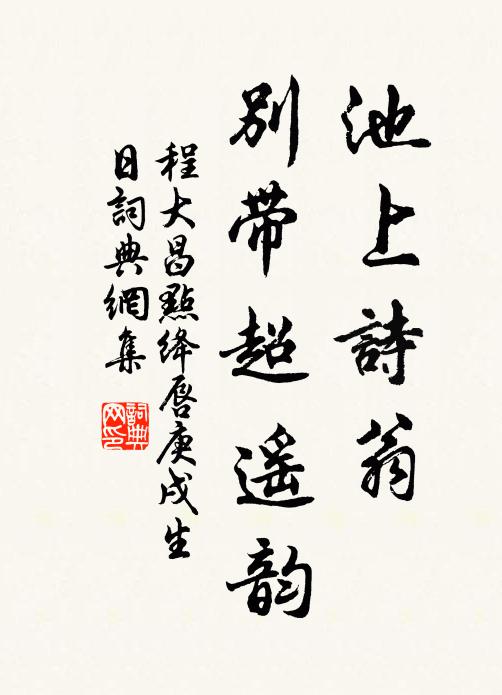 池上詩翁
別帶超遥韵
程大昌點绛唇庚戌生
日詞典網集
詞典网印